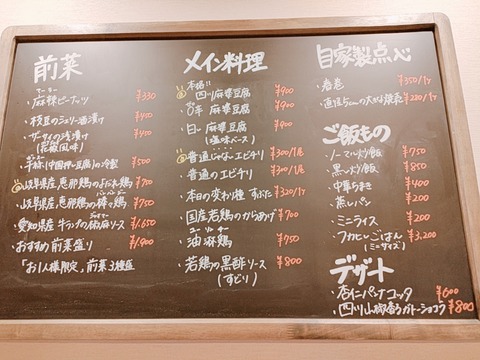 前菜
マーラー
・麻辣ピーナッツ ¥330
・枝豆のジュリー酒漬け ¥450
・ザーサイの浅漬け ¥400
(花椒風味)
・干絲(中国押し豆腐)の冷製 ¥500
・岐阜県産、恵那鶏のよだれ鶏 ¥700
・岐阜県産、恵那鶏の棒々鶏 ¥750
・愛知県産、牛タンの椒麻ソース ¥1,650
・おすすめ前菜盛り ¥1,900
「お1人様限定」前菜3種盛
メイン料理
・本格!!四川麻婆豆腐 ¥900
・麻婆豆腐 ¥900
・白い麻婆豆腐 ¥900
(塩味ベース)
・普通じゃないエビチリ ¥300/1尾
・普通のエビチリ ¥300/1尾
・本日の変わり種 すぶた ¥320/1ヶ
・国産若鶏のからあげ ¥700
ユーリンチー
・油淋鶏 ¥750
・若鶏の黒酢ソース ¥800
(すどり)
自家製点心
・春巻 ¥350/1ヶ
・直径5cmの大がな焼売 ¥280/1ヶ
ご飯もの
・ノーマル炒飯 ¥750
・黒い炒飯 ¥850
・中華ちまき ¥400
・蒸しパン ¥200
・ミニライス ¥200
・フカヒレごはん ¥3,200
(ミニサイズ)
デザート
・杏仁パンナコッタ ¥600
・四川山椒香るガトーショコラ ¥800